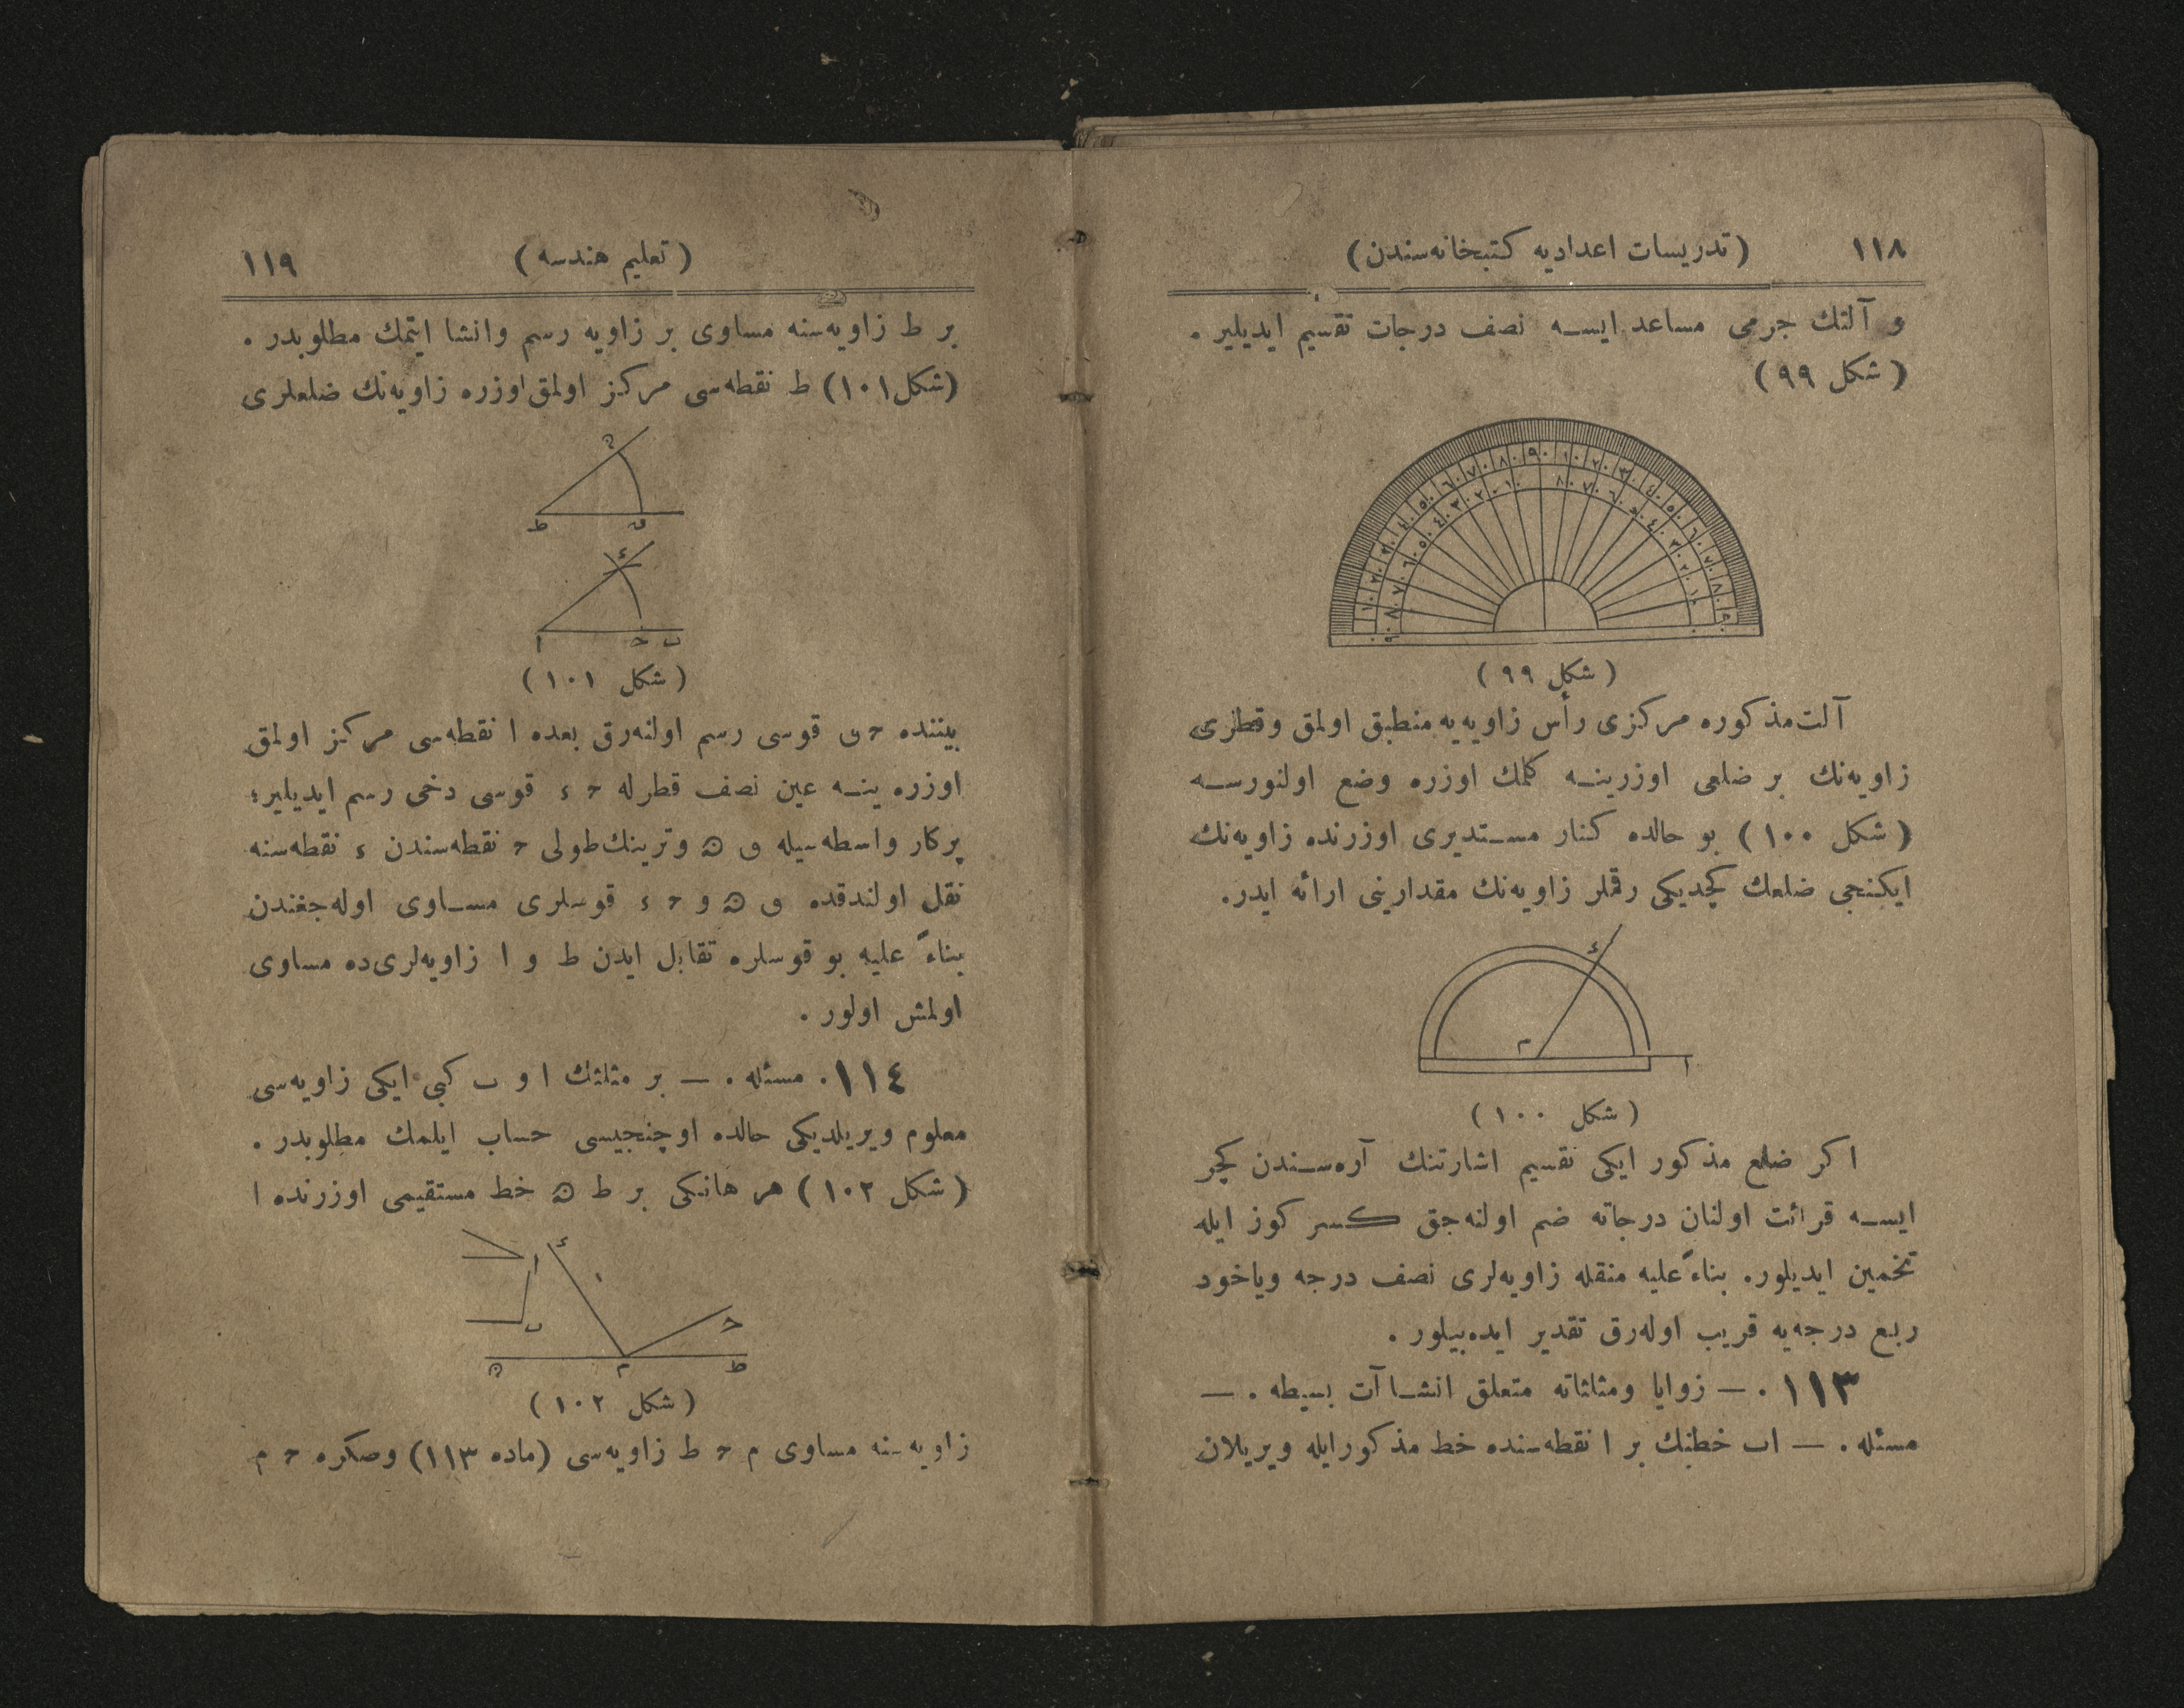 ١١٨
(تدريسات اعداديه كتبخانه‌سندن)
و آلتك جرمی مساعد ايسه نصف درجات تقسيم ايديلير .
(شكل ٩٩)
(شكل ٩٩)
آلت مذكوره مركزی رأس زاويه‌يه منطبق اولمق وقطری
زاويه‌نك بر ضلعی اوزرينه كلمك اوزره وضع اولنورسه
(شكل ١٠٠) بو حالده كنار مستديری اوزرنده زاويه‌نك
ايكنجی ضلعك كچديكی رقملر زاويه‌نك مقدارينی ارائه ايدر.
ء
م
ا
(شكل ١٠٠)
اكر ضلع مذكور ايكی تقسيم اشارتنك آره‌سندن كچر
ايسه قرائت اولنان درجاته ضم اولنه‌جق كسر كوز ايله
تخمين ايديلور. بناءً عليه منقله زاويه‌لری نصف درجه وياخود
ربع درجه‌يه قريب اوله‌رق تقدير ايده‌بيلور .
١١٣ . — زوايا ومثلثاته متعلق انشاآت بسيطه . —
مسئله . — اب خطنك بر ا نقطه‌سنده خط مذكورايله ويريلان
(تعليم هندسه)
١١٩
بر ط زاويه‌سنه مساوی بر زاويه رسم وانشا ايتمك مطلوبدر .
(شكل ١٠١) ط نقطه‌سی مركز اولمق اوزره زاويه‌نك ضلعلری
ه
ط ق
ء
ا ح ب
(شكل ١٠١)
بيننده ح ق قوسی رسم اولنه‌رق بعده ا نقطه‌سی مركز اولمق
اوزره ينه عين نصف قطرله ح ء قوسی دخی رسم ايديلير؛
پركار واسطه‌سيله ق ه وترينك طولی ح نقطه‌سندن ء نقطه‌سنه
نقل اولندقده ق ه و ح ء قوسلری مساوی اوله‌جغندن
بناءً عليه بو قوسلره تقابل ايدن ط و ا زاويه‌لری‌ده مساوی
اولمش اولور .
١١٤ . مسئله . — بر مثلثك ا و ب كبی ايكی زاويه‌سی
معلوم ويريلديكی حالده اوچنجيسی حساب ايلمك مطلوبدر .
(شكل ١٠٢) هر هانكی بر ط ه خط مستقيمی اوزرنده ا
ا
ء
ب
ح
ه م ط
(شكل ١٠٢)
زاويه‌سنه مساوی م ح ط زاويه‌سی (ماده ١١٣) وصكره ح م